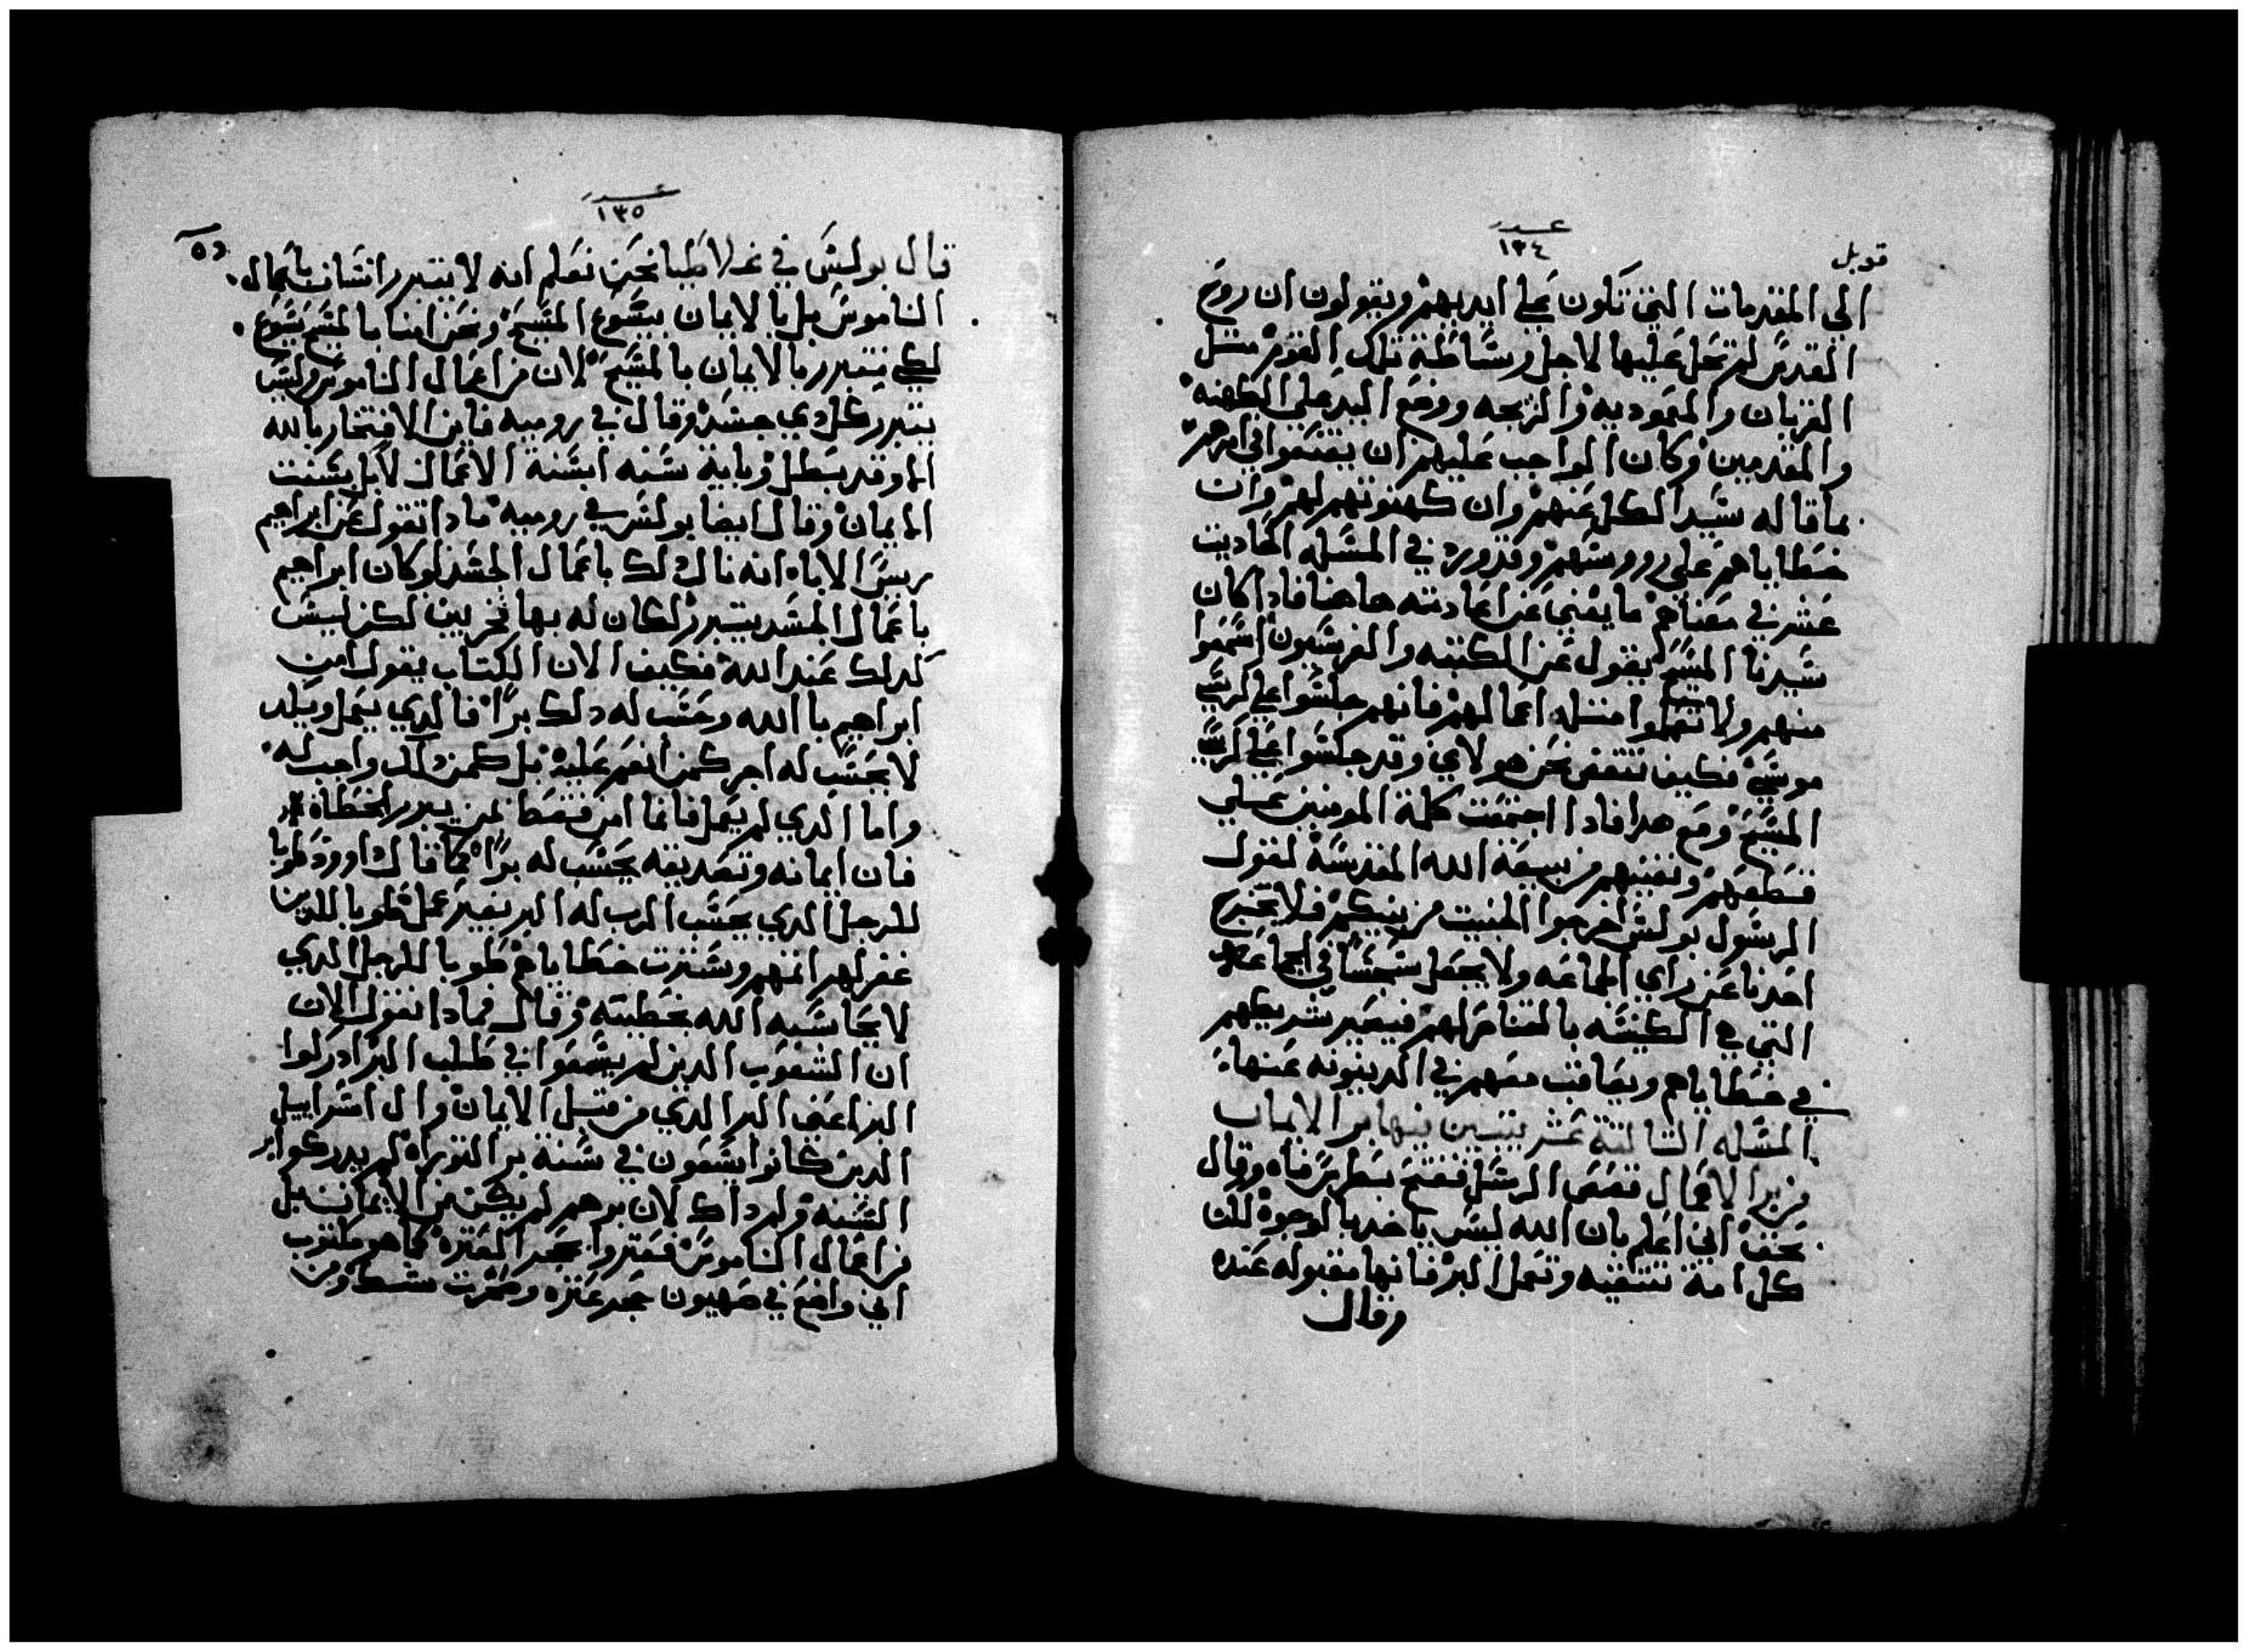 قوبل
عدد
١٣٤
الي المقدمات التي تكون علي ايديهم ويقولون ان روح
القدس لم تحل عليها لاجل وساطة تلك القوم مثل
القربان والمعموديه والزيجه ووضع اليد علي الكهنه
والمقدمين وكان الواجب عليهم ان يقنعوا في امرهم
بما قاله سيد الكل عنهم وان كهنوتهم لهم وان
خطاياهم علي رووسهم وقد ورد في المسله الحاديت
عشر في معناهم ما يغني عن اعادته هاهنا فاذا كان
سيدنا المسيح يقول عن الكتبه والفرسيون اسمعوا
منهم ولا تعملوا مثل اعمالهم فانهم جلسوا علي كرسي
موسي فكيف نتقص نحن هولاي وقد جلسوا علي كرسي
المسيح ومع هدا فادا اجتمعت كلمة المومنين علي
قطعهم ونفيهم من بيعة الله المقدسة لقول
الرسول بولس اخرجوا الخبيت من بينكم فلا يخرج
احدنا عن راي الجماعه ولا يجعل سجسا في الجماعه
التي في الكنيسه بالقناص لهم فيصير شريكهم
في خطاياهم ويعاقب معهم في الدينونه عنها
المسله التالتة عشر يتبين فيها بر الايمان
من بر الاعمال قصص الرسل ففتح بطرس فاه وقال
بحق اني اعلم بان الله ليس ياخد بالوجوه لكن
كل امة تتقيه وتعمل البر فانها مقبوله عنده
وقال
عدد
١٣٥
قال بولس في غلاطيا نحن نعلم انه لا يتبرر انسان باعمال
الناموس بل بالايمان بيسوع المسيح ونحن امنا بالمسيح يسوع
لكي نتبرر بالايمان بالمسيح لان من اعمال الناموس وليس
يتبرر كل دي جسد وقال في روميه فاين الافتخار بالله
الا وقد بطل وباية سنه ابسنة الاعمال لا بل بسنت
الايمان وقال ايضا بولس في روميه مادا تقول عن ابراهيم
ريس الاباء انه نال دلك باعمال الجسد لو كان ابراهيم
باعمال الجسد يتبرر لكان له بها فخر بين لكن ليس
كدلك عند الله فكيف الان الكتاب يقول امن
ابراهيم بالله وحسب له دلك برا فالدي يعمل ويكد
لا يحسب له اجر كمن انعم عليه بل كمن دلك واجب له
واما الدي لم يعمل فانما امن فقط بمن يبرر الخطاة
فان ايمانه وتصديقه يحسب له برا كما قال داوود طوبا
للرجل الدي يحسب الرب له البر بغير عمل طوبا للدين
غفر لهم اتمهم وسترت خطاياهم طوبا للرجل الدي
لا يحاسبه الله بخطيته وقال فمادا نقول الان
ان الشعوب الدين لم يسعوا في طلب البر ادركوا
البر اعني البر الدي من قبل الايمان وال اسراييل
الدين كانوا يسعون في سنة بر التوراه لم يدركوا بر
السنه ولم داك لان برهم لم يكن من الايمان بل
من اعمال الناموس فعتروا بحجر العتره كما هو مكتوب
اني واضع في صهيون حجر عتره وصخرت شك ومن